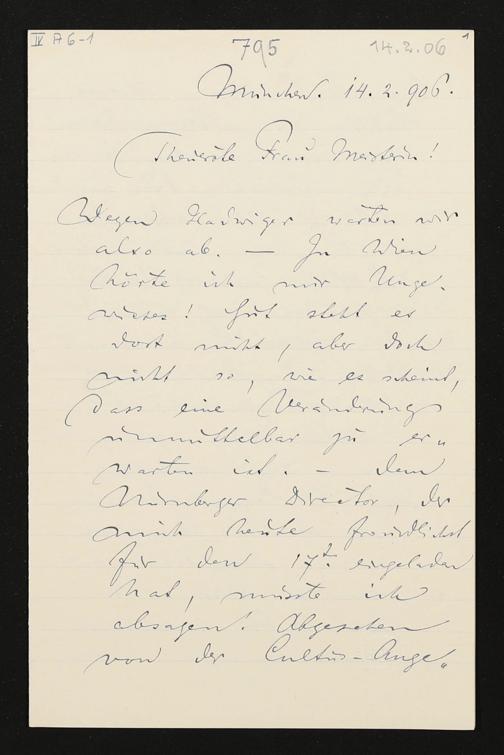 IV A 6-1
795
14.2.06
1
München. 14. 2. 906.
Theuerste Frau Meisterin!
Wegen Hadwiger warten wir
also ab. — In Wien
hörte ich nur Unge-
wisses! Gut steht er
dort nicht, aber doch
nicht so, wie es scheint,
dass eine Veränderung
unmittelbar zu er„
warten ist. – Dem
Nürnberger Director, der
mich heute freundlichst
für den 17t. eingeladen
hat, musste ich
absagen! Abgesehen
von der Cultus-Ange„